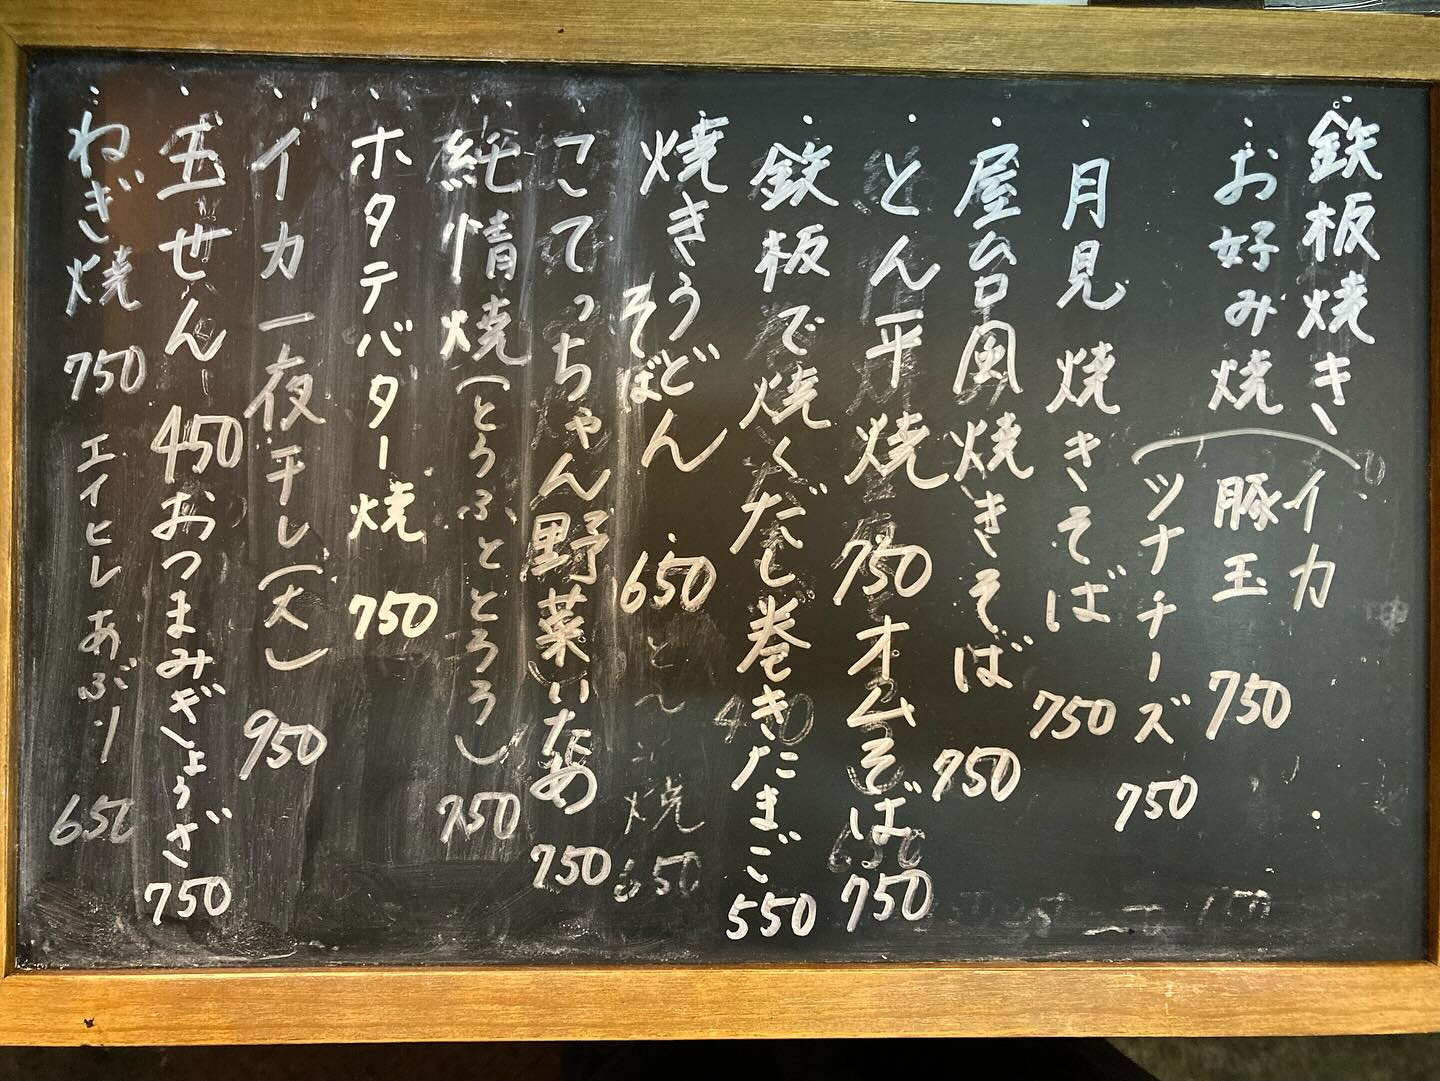 鉄板焼き
・お好み焼(イカ 豚玉 750
ツナチーズ 750)
・月見焼きそば 750
・屋台風焼きそば 750
・とん平焼 750
オムそば 750
・鉄板で焼くだし巻きたまご 550
・焼きうどん そばめし 650
・こてっちゃん野菜いため 750
・純情焼(とうふととろろ) 750
・ホタテバター焼 750
・イカ一夜干し(大) 950
・玉せん 450
おつまみぎょうざ 750
・ねぎ焼 750
エイヒレあぶり 650